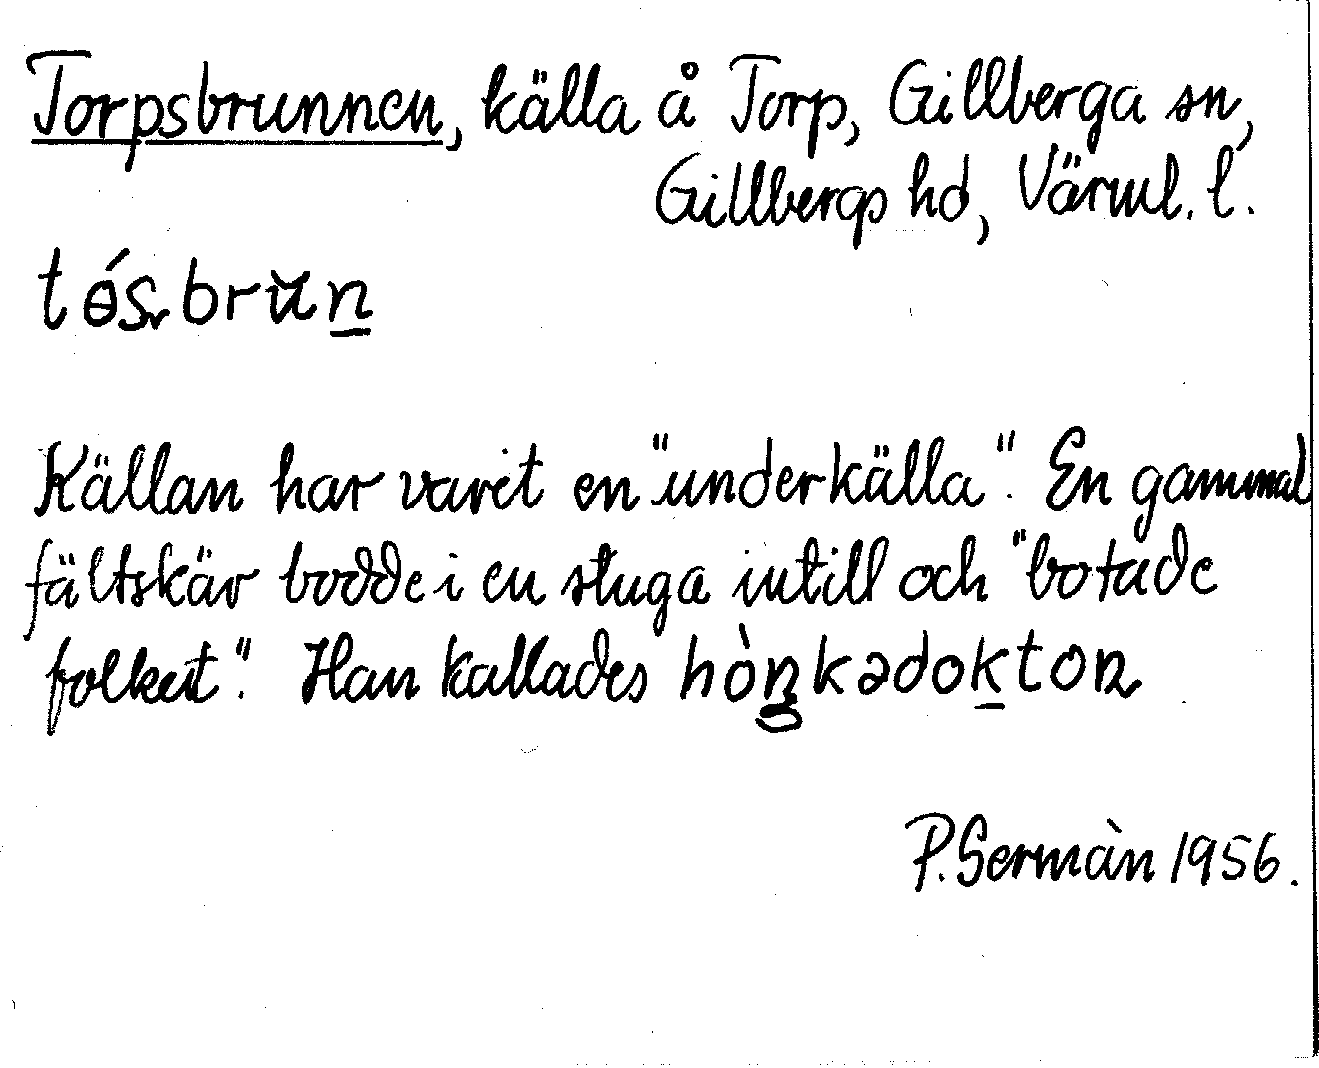 Torpsbrunnen, källa å Torp, Gillberga sn,
Gillbergs hd, Värml. l.
tɵ́sbrùn̲
Källan har varit en "underkälla". En gammal
fältskär bodde i en stuga intill och "botade
folket". Han kallades hòŋkədok̲ton
P. Sermàn 1956.